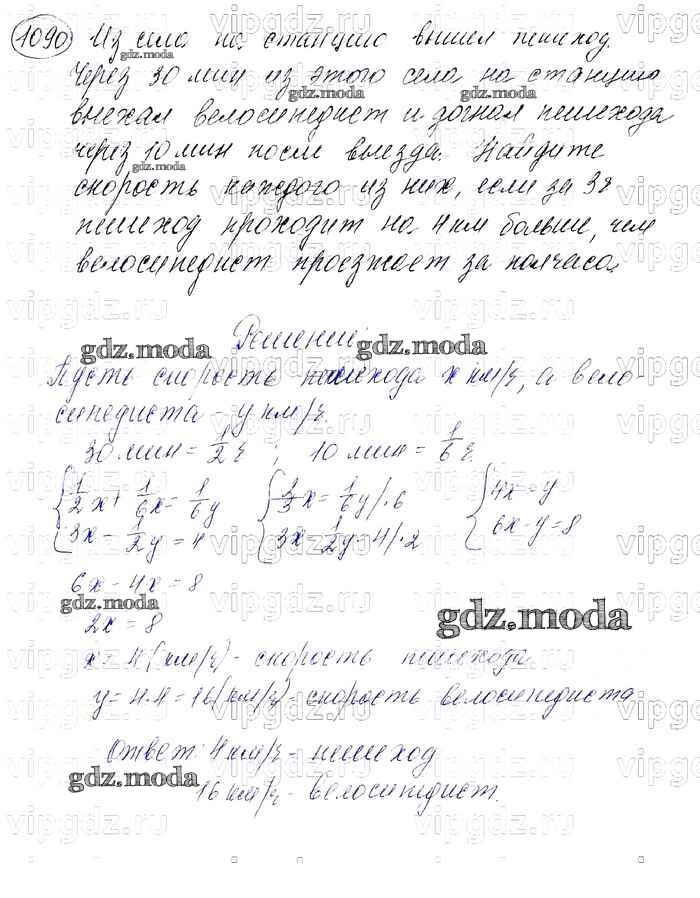 1090 Из села на станцию вышел пешеход.
Через 30 мин из этого села на станцию
выехал велосипедист и догнал пешехода
через 10 мин после выезда. Найдите
скорость каждого из них, если за 3ч
пешеход проходит на 4 км больше, чем
велосипедист проезжает за полчаса.
Решение:
Пусть скорость пешехода x км/ч, а вело-
сипедиста - y км/ч.
30 мин = 1/2 ч ; 10 мин = 1/6 ч.
{ 1/2 x + 1/6 x = 1/6 y { 2/3 x = 1/6 y |·6 { 4x = y
3x - 1/2 y = 4 3x - 1/2 y = 4 |·2 6x - y = 8
6x - 4x = 8
2x = 8
x = 4 (км/ч) - скорость пешехода
y = 4·4 = 16 (км/ч) - скорость велосипедиста
Ответ: 4 км/ч - пешеход
16 км/ч - велосипедист.
gdz.moda
vipgdz.ru